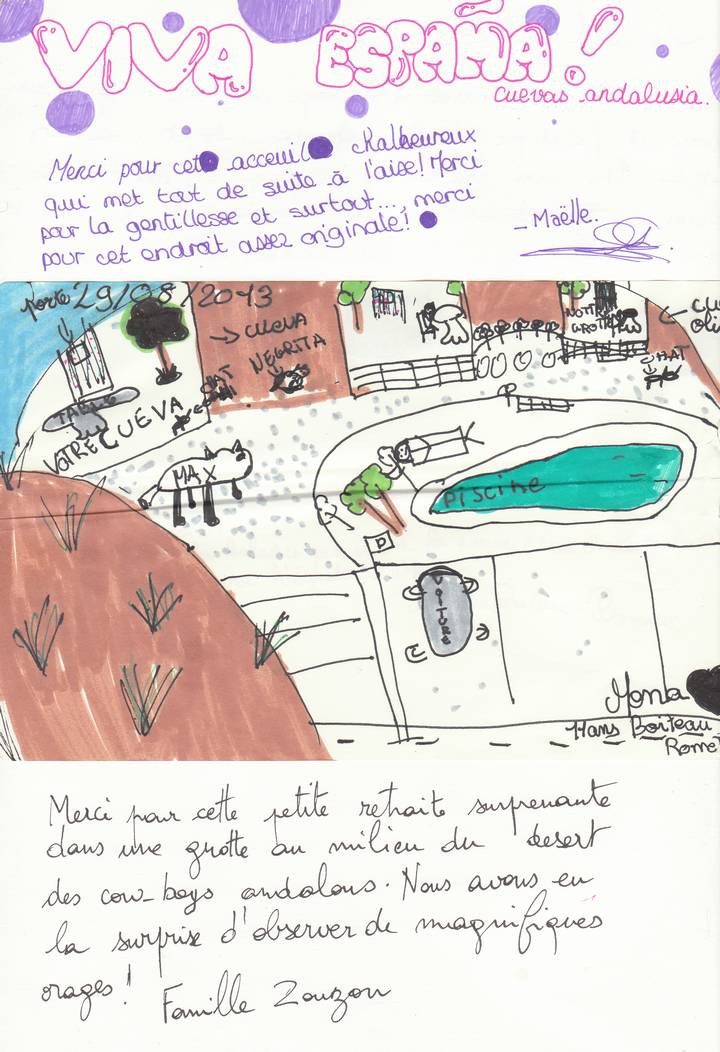 VIVA ESPAÑA!
cuevas andalusia.
Merci pour cet acceuil Kalheureux
qui met tout de suite à l'aise! Merci
pour la gentillesse et surtout..., merci
pour cet endroit assez originale!
_ Maëlle.
porte 29/08/2013
→ CUEVA
NEGRITA
NOTRE
GROTTE
CHAT
CHAT
TABLE
VOTRE CUÉVA
MAX
P
Piscine
P
VOITURE
Mona
Hans Boiteau
Romet
Merci pour cette petite retraite surprenante
dans une grotte au milieu du desert
des cow-boys andalous. Nous avons eu
la surprise d'observer de magnifiques
orages!
Famille Zouzou